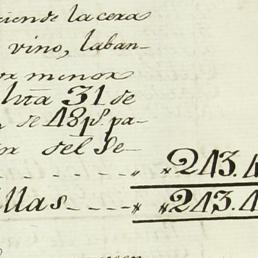 ciende la cera
vino, laban-
or menor
hta 31 de
de 48 ps. pa-
del Se-
243.4
llas 243.4